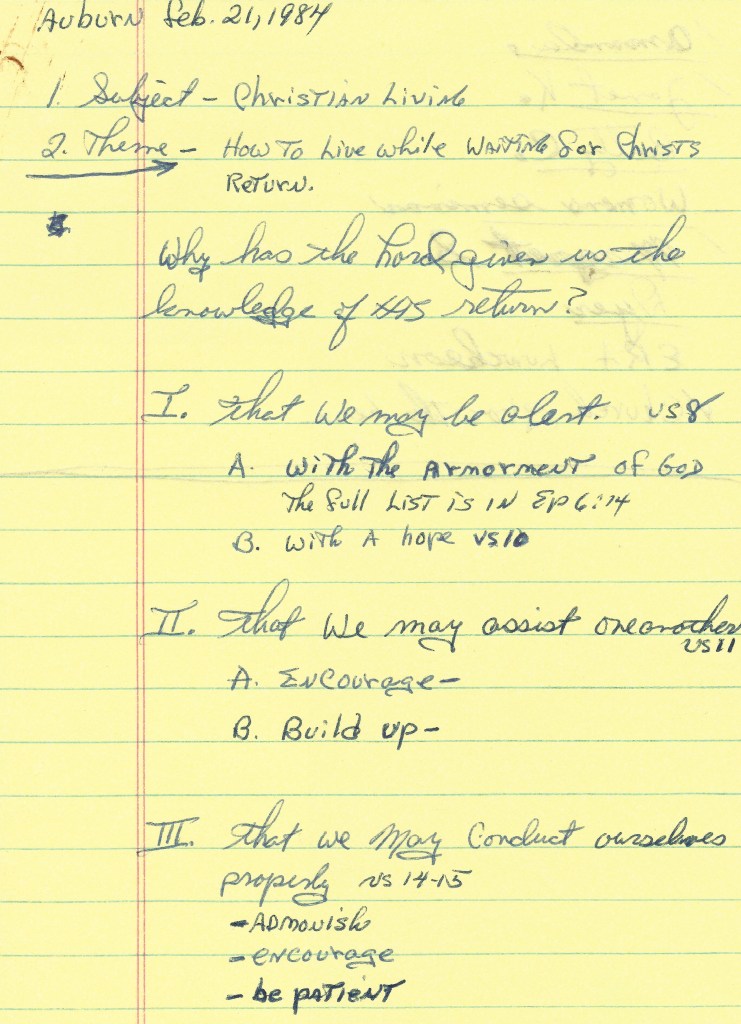 Auburn Feb. 21, 1984
1. Subject - Christian Living
2. Theme - How To Live while WAITING for Christs
Return.
Why has the Lord given us the
knowledge of HIS return?
I. That we may be alert. vs 8
A. With The ARMORMENT of GOD
The full LIST is IN Ep 6:14
B. With A hope vs 10
II. That We may assist one another
vs 11
A. Encourage -
B. Build up -
III. That we May Conduct ourselves
properly vs 14-15
- ADMONISH
- encourage
- be PATIENT